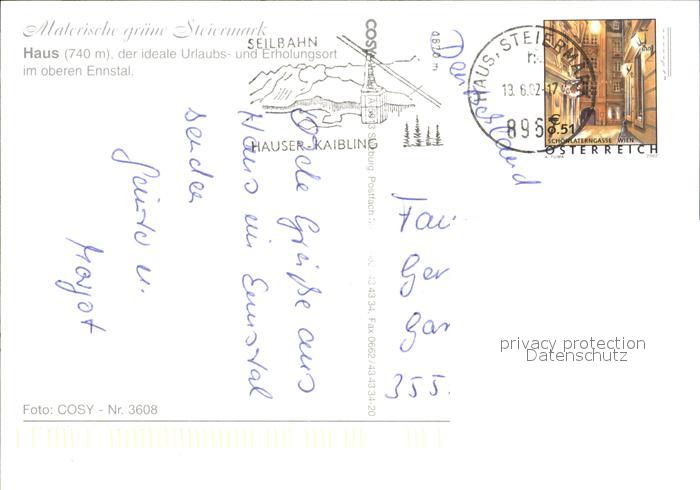 Malerische grüne Steiermark
Haus (740 m), der ideale Urlaubs- und Erholungsort
im oberen Ennstal.
SEILBAHN
HAUSER KAIBLING
1820 m
HAUS, STEIERMARK
13.6.02-17
896
€ 0.51
SCHÖNLATERNGASSE WIEN
ÖSTERREICH
2002
Deutschland
Viele Grüße aus
Haus im Ennstal
senden
Günter u.
Margot
Fam
Ger
Gar
355
COSY
Postfach
43 43 34, Fax 0662/43 43 34-20
privacy protection
Datenschutz
Foto: COSY - Nr. 3608